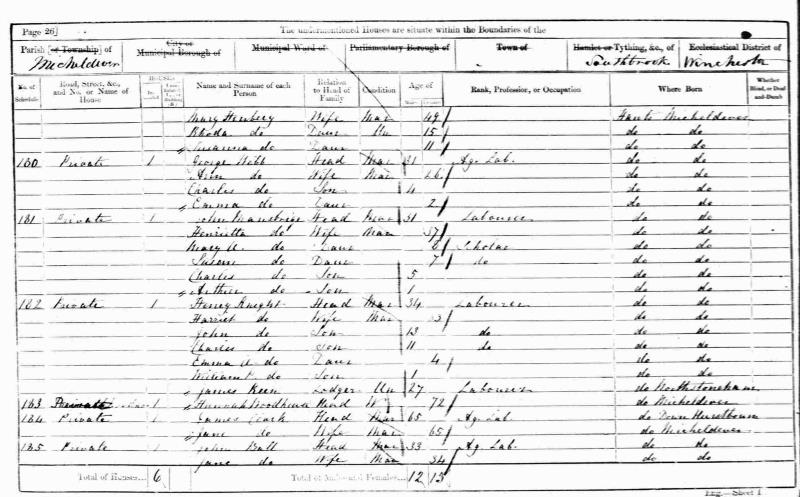 Page 26] The undermentioned Houses are situate within the Boundaries of the
Parish [or Township] of City or Municipal Borough of Municipal Ward of Parliamentary Borough of Town of Hamlet or Tything, &c., of Ecclesiastical District of
Micheldever Southbrook Winchester
No. of Schedule Road, Street, &c., and No. or Name of House HOUSES Name and Surname of each Person Relation to Head of Family Condition Age of Rank, Profession, or Occupation Where Born Whether Blind, or Deaf-and-Dumb
Mary Wife Mar 49 Hants Micheldever
Rhoda do Daur Un 15 do do
Susanna do Daur 11 do do
180 Private 1 George Webb Head Mar 31 Ag. Lab. do do
Ann do Wife Mar 26 do do
Charles do Son 4 do do
Emma do Daur 2 do do
181 Private 1 John Head Mar 31 Labourer do do
Henrietta do Wife Mar 37 do do
Mary A. do Daur 8 Scholar do do
Susan do Daur 7 do do do
Charles do Son 5 do do
Arthur do Son 1 do do
182 Private 1 Henry Knight Head Mar 34 Labourer do do
Harriet do Wife Mar 33 do do
John do Son 13 do do do
Charles do Son 11 do do do
Emma A. do Daur 4 do do
William do Son 1 do do
James Keen Lodger Un 27 Labourer do Northstoneham
183 Private 1 Hannah Woodhouse Head W 72 do Micheldever
184 Private 1 James Clark Head Mar 65 Ag. Lab do Down Hurstbourn
Jane do Wife Mar 65 do Micheldever
185 Private 1 John Ball Head Mar 33 Ag. Lab. do do
Jane do Wife Mar 34 do do
Total of Houses... 6 Total of Males and Females... 12 13
Eng.—Sheet I.